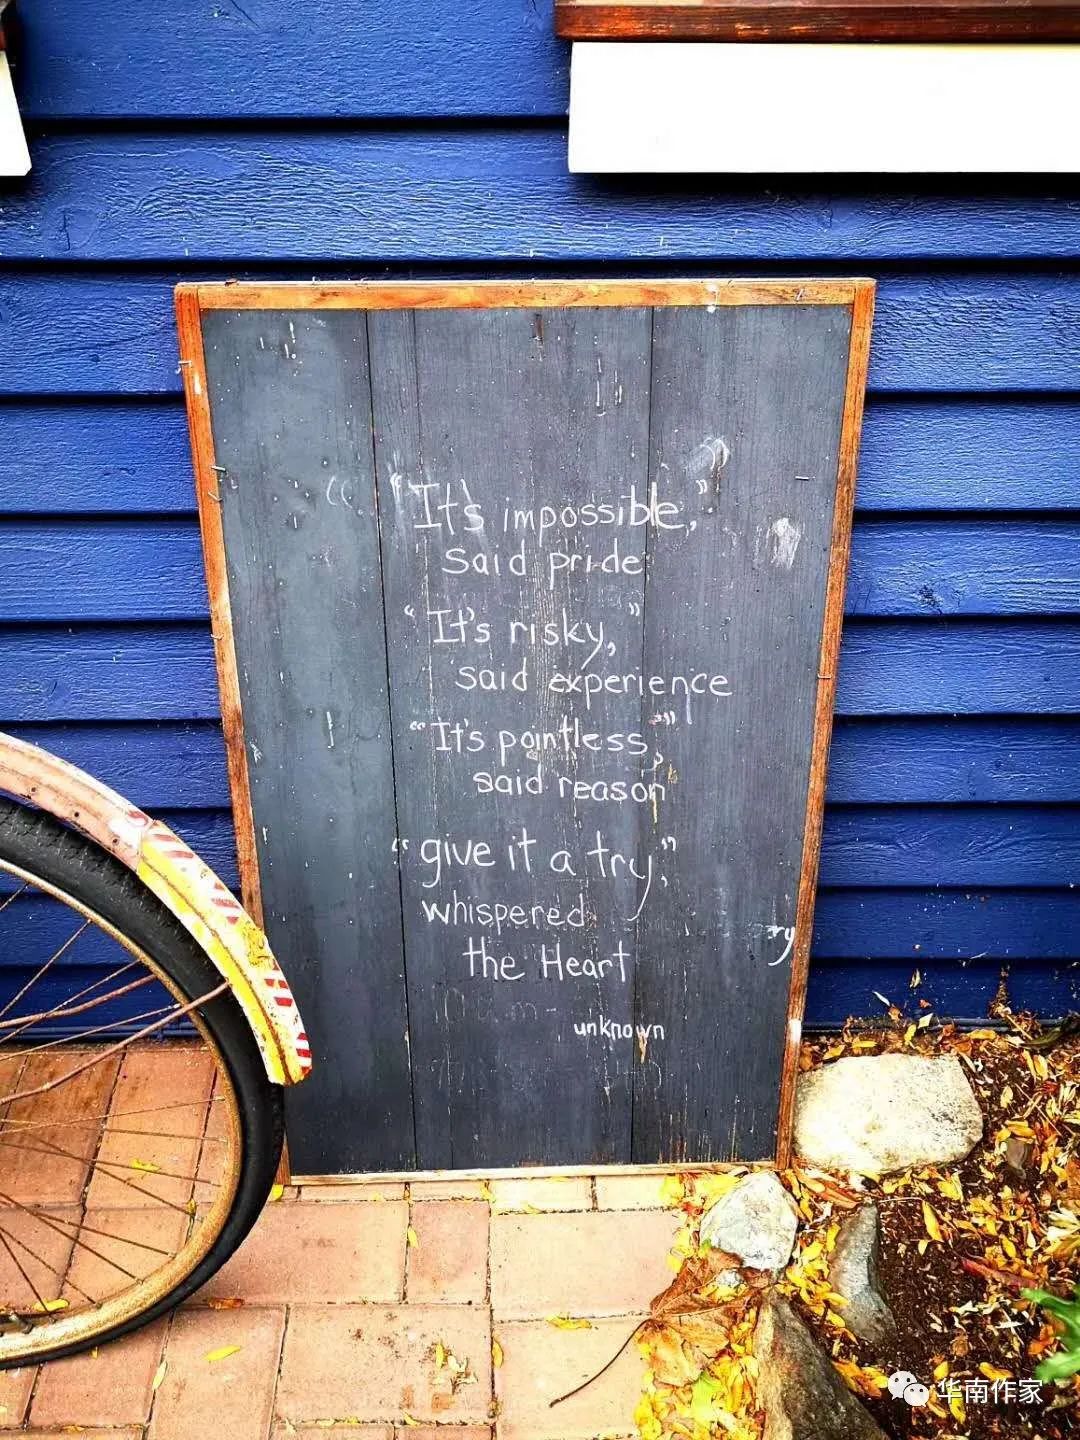 “It's impossible,”
said pride
“It's risky,”
said experience
“It's pointless,”
said reason
“give it a try,”
whispered
the Heart
unknown
ry
华南作家